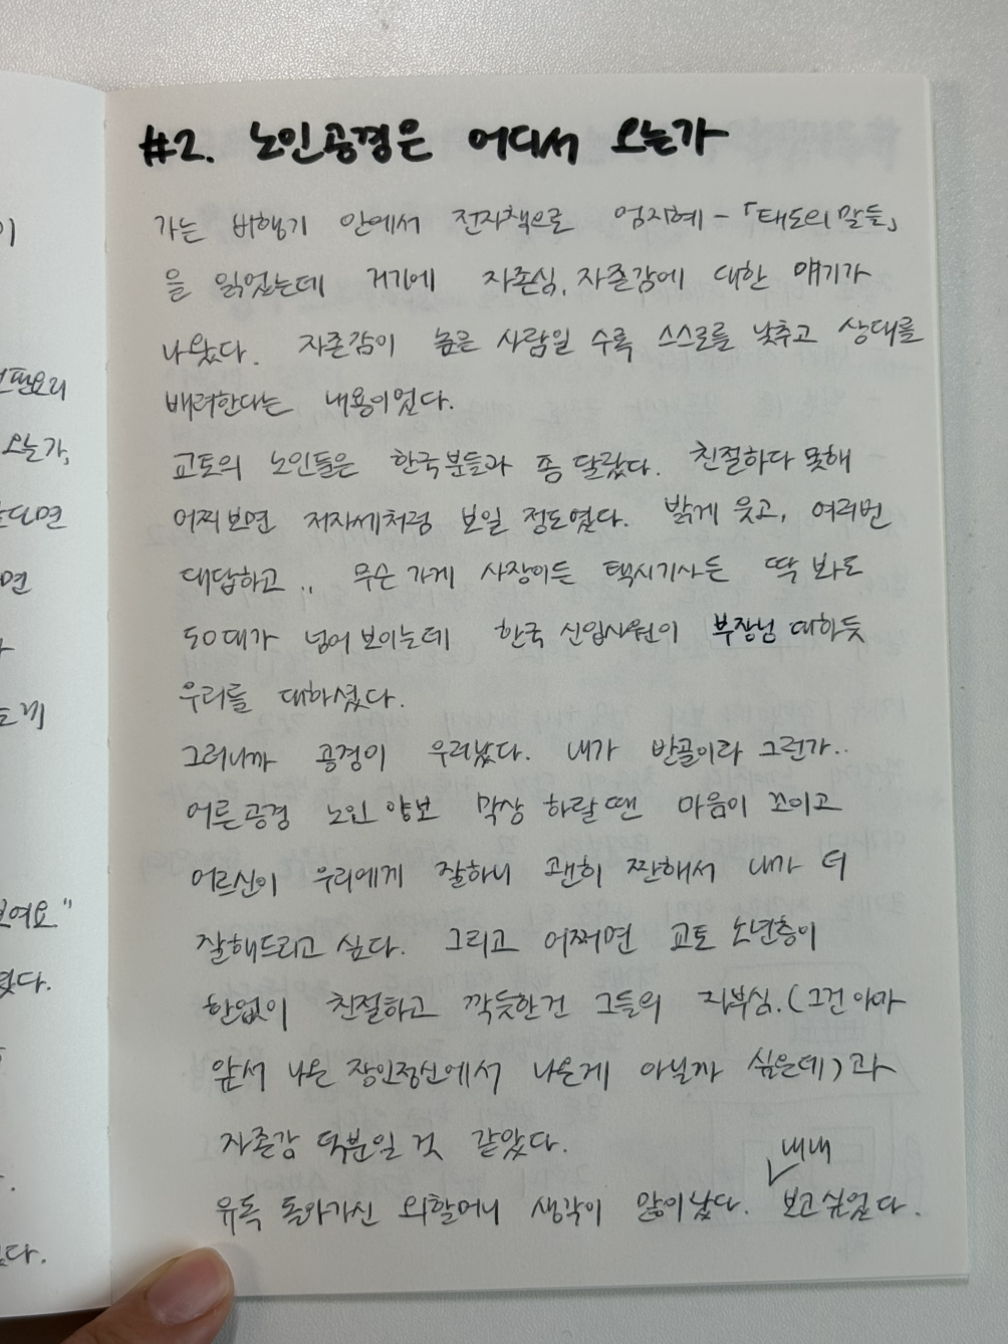 이
#2. 노인공경은 어디서 오는가
가는 비행기 안에서 전자책으로 엄지혜 - 「태도의 말들」
을 읽었는데 거기에 자존심, 자존감에 대한 얘기가
나왔다. 자존감이 높은 사람일 수록 스스로를 낮추고 상대를
배려한다는 내용이었다.
오는가,
교토의 노인들은 한국분들과 좀 달랐다. 친절하다 못해
어찌보면 저자세처럼 보일 정도였다. 밝게 웃고, 여러번
면
대답하고.. 무슨 가게 사장이든 택시기사든 딱 봐도
50대가 넘어 보이는데 한국 신입사원이 부장님 대하듯
우리를 대하셨다.
그러니까 공경이 우러났다. 내가 반골이라 그런가..
어른공경 노인 양보 막상 하랄 땐 마음이 꼬이고
어르신이 우리에게 잘하니 괜히 짠해서 내가 더
잘해드리고 싶다. 그리고 어쩌면 교토 노년층이
한없이 친절하고 깍듯한건 그들의 자부심.(그건 아마
앞서 나온 장인정신에서 나온게 아닐까 싶은데)과
자존감 덕분일 것 같았다.
유독 돌아가신 외할머니 생각이 많이났다. 내내 보고싶었다.